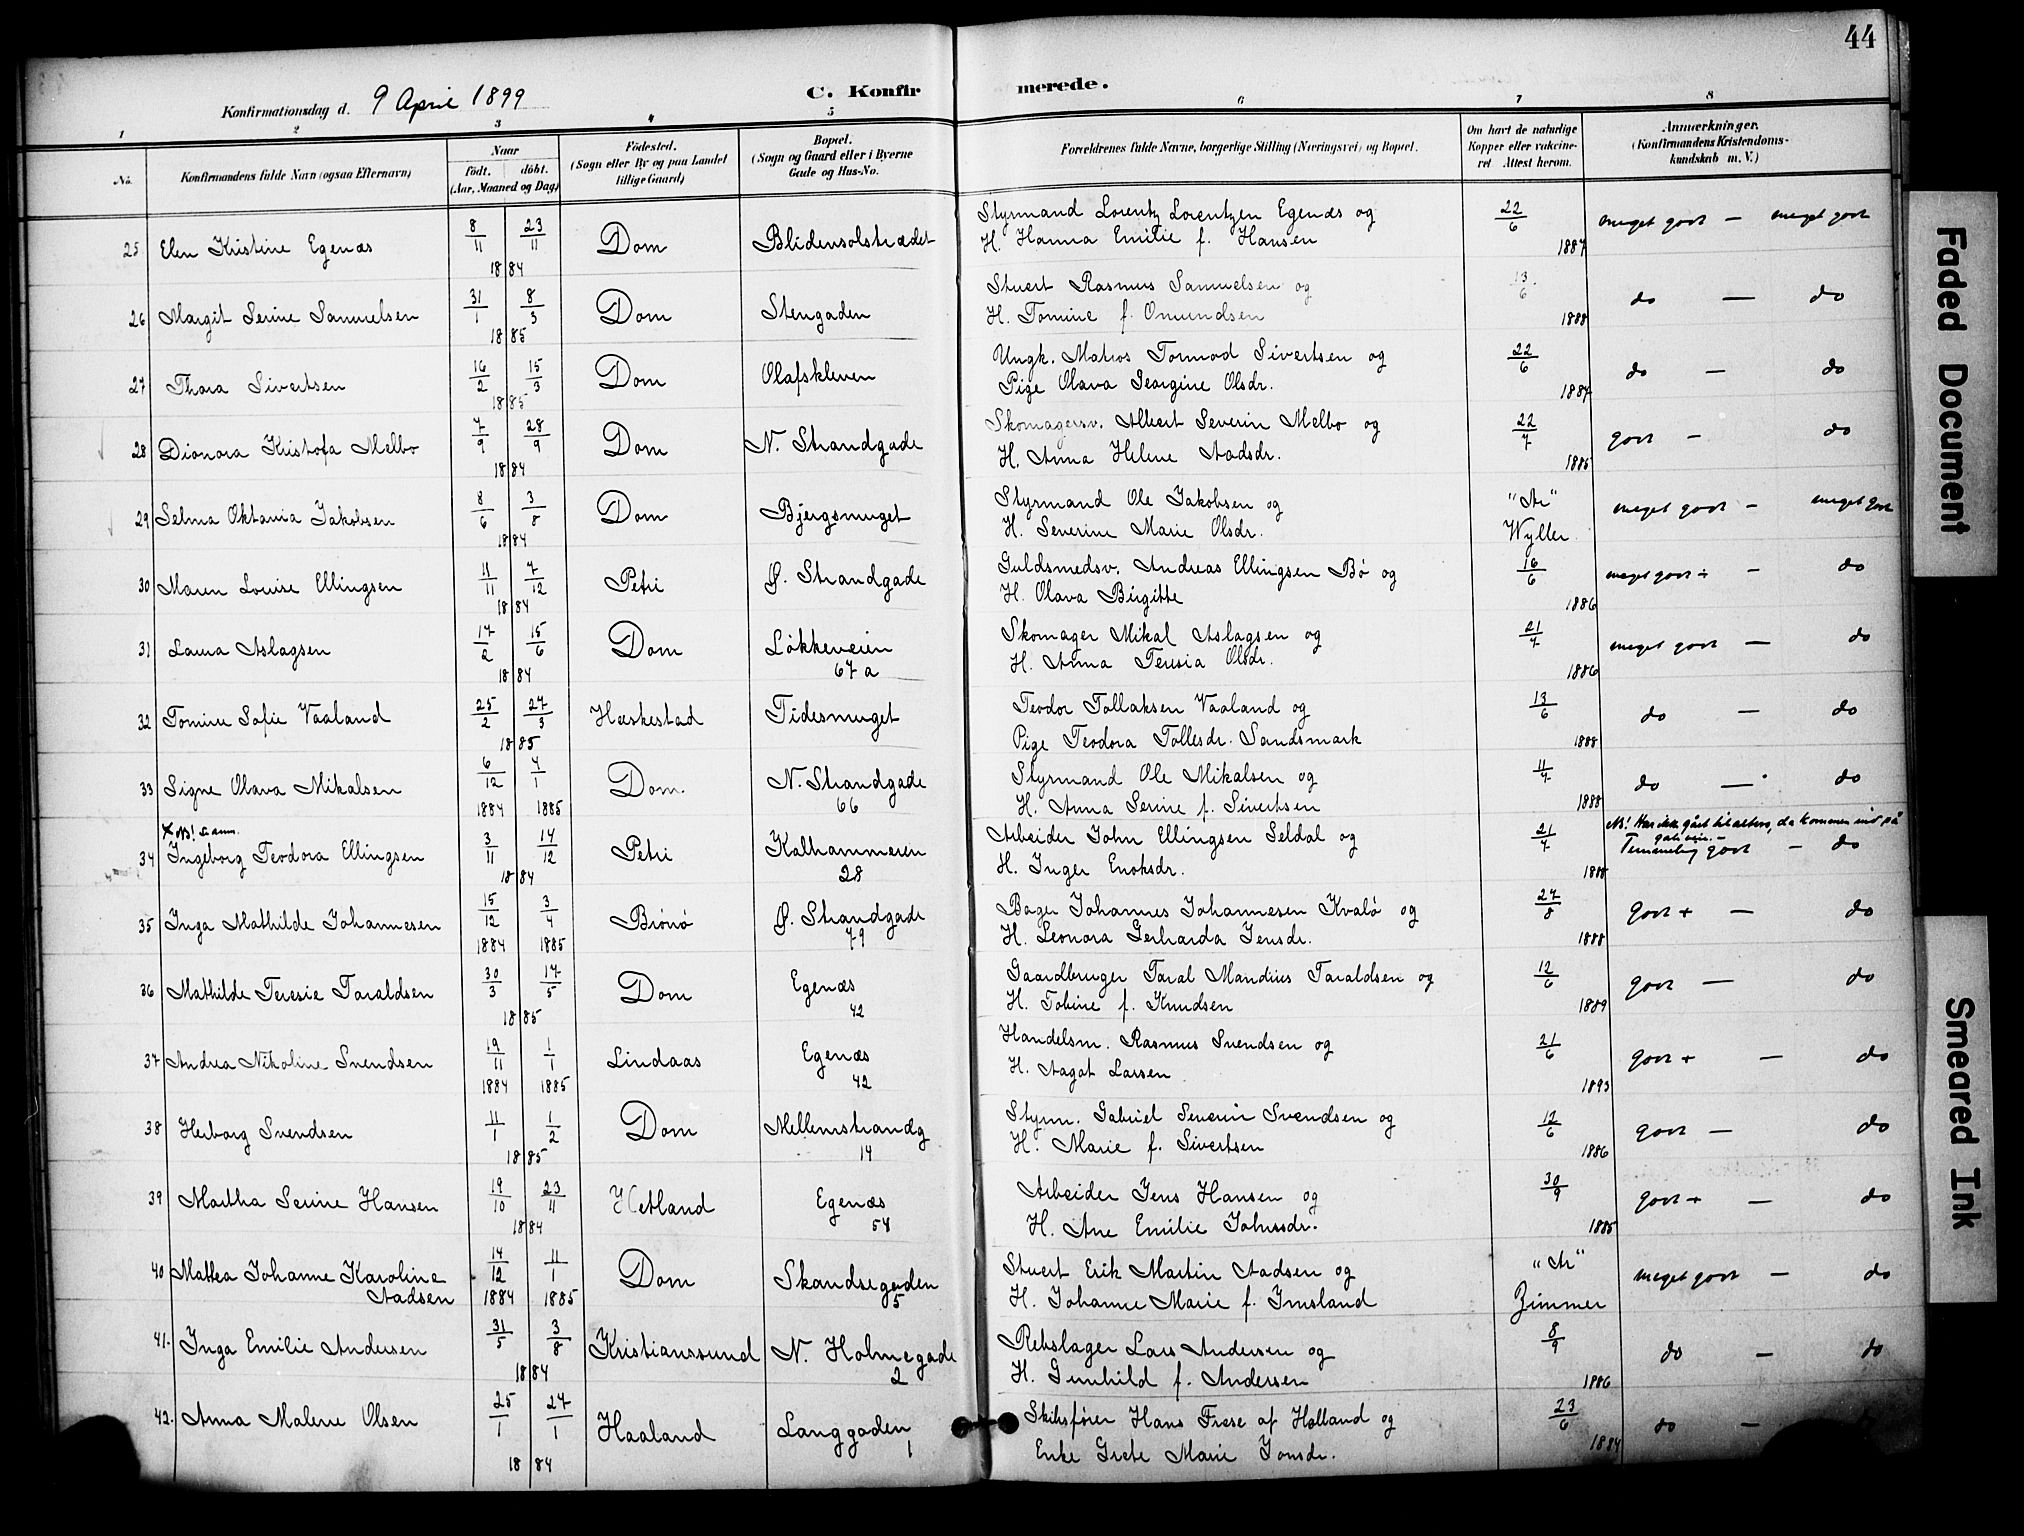 44
Konfirmationsdag d. 9 April 1899
C. Konfirmerede.
1 2 3 4 5 6 7 8
No.
Konfirmandens fulde Navn (ogsaa Efternavn)
Naar
født. døbt.
(Aar, Maaned og Dag)
Fødested.
(Sogn eller By og paa Landet
tillige Gaard)
Bopæl.
(Sogn og Gaard eller i Byerne
Gade og Hus-No.
Forældrenes fulde Navne, borgerlige Stilling (Næringsvei) og Bopæl.
Om havt de naturlige
Kopper eller vakcine-
ret Attest herom.
Anmærkninger.
(Konfirmandens Kristendoms-
kundskab m. V.)
25 Elen Kristine Egenæs 8/11 23/11 1884 Dom Blidensolstrædet Styrmand Lorentz Lorentzen Egenæs og
H. Hanna Emilie f. Hansen 22/6 1887 meget godt — meget godt
26 Margit Serine Samuelsen 31/1 8/3 1885 Dom Stengaden Stuert Rasmus Samuelsen og
H. Tomine f. Omundsen 13/6 1888 do — do
27 Thora Sivertsen 16/2 15/3 1885 Dom Olafskleven Ungk. Matros Tormod Sivertsen og
Pige Olava Georgine Olsdr. 22/6 1887 do — do
28 Dionora Kristofa Melbo 7/9 28/9 1884 Dom N. Strandgade Skomagersv. Albert Severin Melbo og
H. Anna Helene Aadsdr. 22/7 1885 godt — do
29 Selma Oktavia Jakobsen 8/6 3/8 1884 Dom Bjergsmuget Styrmand Ole Jakobsen og
H. Severine Marie Olsdr. "Atr" Wyller meget godt — meget godt
30 Maren Louise Ellingsen 11/11 7/12 1884 Petri Ø. Strandgade Guldsmedsv. Andreas Ellingsen Bø og
H. Olava Birgitte 16/6 1886 meget godt ÷ — do
31 Laura Aslagsen 17/2 15/6 1884 Dom Løkkeveien
67 a Skomager Mikal Aslagsen og
H. Anna Teresia Olsdr. 21/7 1886 meget godt — do
32 Tomine Sofie Vaaland 25/2 27/3 1885 Heskestad Tidesmuget Teodor Tollaksen Vaaland og
Pige Teodora Tollesdr. Sandsmark 13/6 1888 do — do
33 Signe Olava Mikalsen 6/12 1884 4/1 1885 Dom. N. Strandgade
66 Styrmand Ole Mikalsen og
H. Anna Serine f. Sivertsen 11/7 1888 do — do
34 Ingeborg Teodora Ellingsen 3/11 14/12 1884 Petri Kalhammeren
28 Arbeider John Ellingsen Seldal og
H. Inger Enoksdr. 21/7 1888 NB! Har ikke gået til alters, da kommen ind på
gale veie. —
Temmelig godt — do
35 Inga Mathilde Johannesen 15/12 1884 3/4 1885 Brønø Ø. Strandgade
79 Bager Johannes Johannesen Kvalø og
H. Leonora Gerharda Jensdr. 27/8 1888 godt + — do
36 Mathilde Teresie Taraldsen 30/3 17/5 1885 Dom Egenæs
42 Gaardbruger Taral Mandius Taraldsen og
H. Tobine f. Knudsen 12/6 1889 godt — do
37 Andrea Nikoline Svendsen 19/11 1884 1/1 1885 Lindaas Egenæs
42 Handelsm. Rasmus Svendsen og
H. Aagot Larsen 21/6 1893 godt + — do
38 Herborg Svendsen 11/1 1/2 1885 Dom Mellemstrandg
14 Styrm. Gabriel Severin Svendsen og
H. Marie f. Sivertsen 12/6 1886 godt — do
39 Martha Serine Hansen 19/10 23/11 1884 Hetland Egenæs
54 Arbeider Jens Hansen og
H. Ane Emilie Johnsdr. 30/9 1885 godt + — do
40 Mathea Johanne Karoline
Aadsen 14/12 1884 11/1 1885 Dom Skandsegaden
5 Stuert Erik Martin Aadsen og
H. Johanne Marie f. Imsland "Atr" Zimmer meget godt — do
41. Inga Emilie Andersen 31/5 3/8 1884 Kristianssund N. Holmegade
2 Rebslager Lars Andersen og
H. Gunhild f. Andersen 8/9 1886 do — do
42. Anna Malene Olsen 25/1 27/1 1884 Haaland Langgaden
1 Skibsfører Hans Frese af Holland og
Enke Grete Marie Jonsdr. 23/6 1884 do —
Faded Document
Smeared Ink